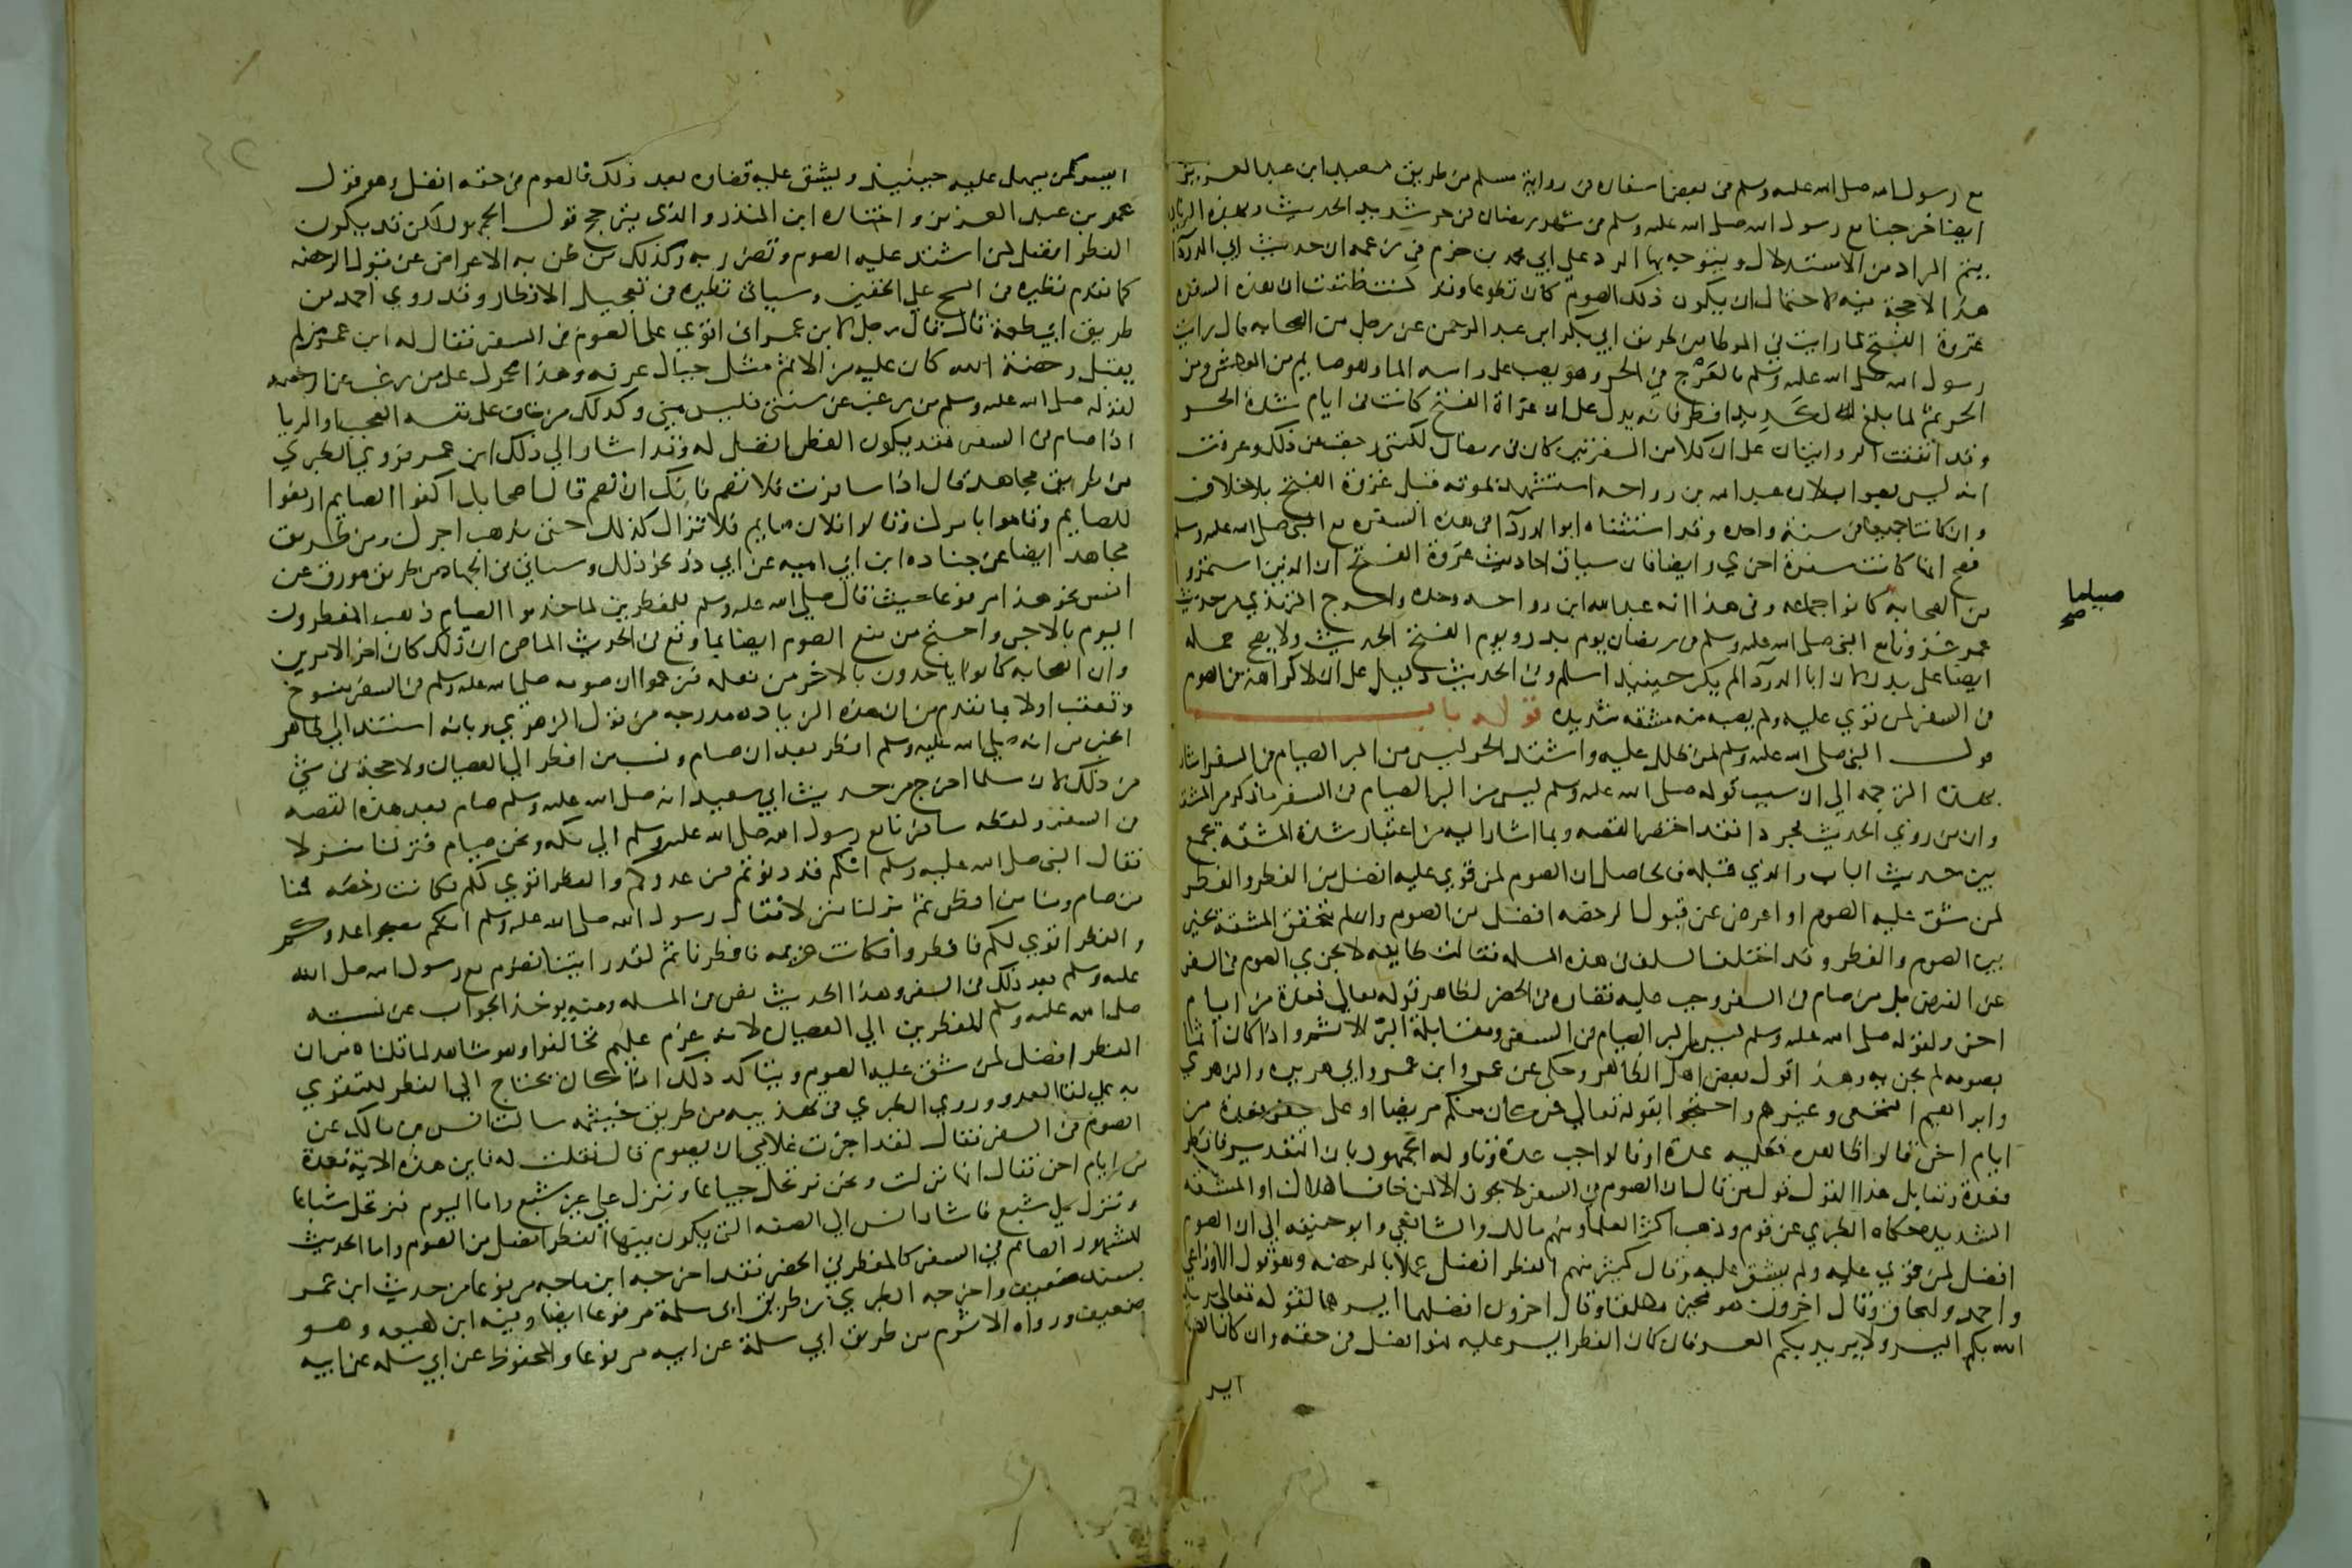 مع رسول الله صلى الله عليه وسلم في بعض اسفاره في رواية مسلم من طريق سعيد ابن عبد العزيز
ايضا خرجنا مع رسول الله صلى الله عليه وسلم في شهر رمضان في حر شديد الحديث وبهذه الزياده
يتم المراد من الاستدلال ويتوجه بها الرد على ابي محمد بن حزم في زعمه ان حديث ابي الدردآ
هذا لا حجة فيه لاحتمال ان يكون ذلك الصوم كان تطوعا وقد كنت ظننت ان هذه السفره
غزوة الفتح لما رايت في الموطا من طريق ابي بكر ابن عبد الرحمن عن رجل من الصحابه قال رايت
رسول الله صلى الله عليه وسلم بالعَرْج في الحر وهو يصب على راسه الما وهو صايم من العطش ومن
الحر ثم لما بلغ الكَدِيد افطر فانه يدل على ان غزاة الفتح كانت في ايام شدة الحر
وقد اتفقت الروايتان على ان كلا من السفرتين كان في رمضان لكنني رجعت عن ذلك وعرفت
انه ليس بصواب لان عبد الله بن رواحه استشهد بموته قبل غزوة الفتح بلا خلاف
وان كانتا جميعا في سنة واحده وقد استثناه ابو الدردآ في هذه السفره مع النبي صلى الله عليه وسلم
فصح انها كانت سفرة اخري وايضا فان سياق احاديث غزوة الفتح ان الذين استمروا
من الصحابه كانوا جماعه وفي هذا انه عبد الله ابن رواحه وحده واخرج الترمذي من حديث
صياما صح
عمر غزونا مع النبي صلى الله عليه وسلم في رمضان يوم بدر ويوم الفتح الحديث ولا يصح حمله
ايضا على بدر لان ابا الدردآ لم يكن حينيذ اسلم وفي الحديث دليل على ان لا كراهة في الصوم
في السفر لمن قوي عليه ولم يصبه منه مشقه شديده قوله باب
قول النبي صلى الله عليه وسلم لمن ظلل عليه واشتد الحر ليس من البر الصيام في السفر اشار
بهذه الترجمه الي ان سبب قوله صلى الله عليه وسلم ليس من البر الصيام في السفر ما ذكر من المشقه
وان من روي الحديث مجردا فقد اختصر القصه وبما اشار اليه من اعتبار شدة المشقه يجمع
بين حديث الباب والذي قبله فالحاصل ان الصوم لمن قوي عليه افضل من الفطر والفطر
لمن شق عليه الصوم او اعرض عن قبول الرخصه افضل من الصوم وان لم تتحقق المشقة يخير
بين الصوم والفطر وقد اختلف السلف في هذه المسله فقالت طايفه لا يجزي الصوم في السفر
عن الفرض بل من صام في السفر وجب عليه قضاوه في الحضر لظاهر قوله تعالي فعدة من ايام
اخر ولقوله صلى الله عليه وسلم ليس من البر الصيام في السفر ومقابلة البرّ الاثم واذا كان اثما
بصومه لم يجز به وهذا قول بعض اهل الظاهر وحكي عن عمر وابن عمر وابي هريره والزهري
وابراهيم النخعي وغيرهم واحتجوا بقوله تعالي فمن كان منكم مريضا او على سفر فعدة من
ايام اخر قالوا ظاهره فعليه عدة او فالواجب عدة وتاوله الجمهور بان التقدير فافطر
فعدة ومقابل هذا القول قول من قال ان الصوم في السفر لا يجوز الا لمن خاف الهلاك او المشقه
الشديده حكاه الطبري عن قوم وذهب اكثر العلما ومنهم مالك والشافعي وابو حنيفه الي ان الصوم
افضل لمن قوي عليه ولم يشق عليه وقال كثير منهم الفطر افضل عملا بالرخصه وهو قول الاوزاعي
واحمد واسحاق وقال اخرون هو مخير مطلقا وقال اخرون افضلهما ايسرهما لقوله تعالي يريد
الله بكم اليسر ولا يريد بكم العسر فان كان الفطر ايسر عليه فهو افضل في حقه وان كان الصيام
ايسر
ايسر كمن يسهل عليه حينيذ ويشق عليه قضاوه بعد ذلك فالصوم في حقه افضل وهو قول
عمر بن عبد العزيز واختاره ابن المنذر والذي يترجح قول الجمهور لاكن قد يكون
الفطر افضل لمن اشتد عليه الصوم وتضرر به وكذلك من ظن به الاعراض عن قبول الرخصه
كما تقدم نظيره في المسح على الخفين وسياتي نظيره في تعجيل الافطار وقد روي احمد من
طريق ابي طعمة قال قال رجل لابن عمر اني اقوي على الصوم في السفر فقال له ابن عمر من لم
يقبل رخصة الله كان عليه من الاثم مثل جبال عرفه وهذا محمول على من رغب عن الرخصه
لقوله صلى الله عليه وسلم من رغب عن سنتي فليس مني وكذلك من خاف على نفسه العجب او الريا
اذا صام في السفر فقد يكون الفطر افضل له وقد اشار الي ذلك ابن عمر فروي الطبري
من طريق مجاهد قال اذا سافرت فلا تصم فانك ان تصم قال اصحابك اكفوا الصايم ارفعوا
للصايم وقاموا بامرك وقالوا فلان صايم فلا تزال كذلك حتى يذهب اجرك ومن طريق
مجاهد ايضا عن جناده ابن ابي اميه عن ابي ذر نحو ذلك وسياتي في الجهاد من طريق مورق عن
انس نحو هذا مرفوعا حيث قال صلى الله عليه وسلم للمفطرين لما خدموا الصيام ذهب المفطرون
اليوم بالاجر واحتج من منع الصوم ايضا بما وقع في الحديث الماضي ان ذلك كان اخر الامرين
وان الصحابه كانوا ياخذون بالاخر من فعله فزعموا ان صومه صلى الله عليه وسلم في السفر منسوخ
وتعقب اولا بما تقدم من ان هذه الزياده مدرجه من قول الزهري وبانه استند الي ظاهر
الخبر من انه صلى الله عليه وسلم افطر بعد ان صام ونسب من افطر الي العصيان ولا حجة في شي
من ذلك لان مسلما اخرج من حديث ابي سعيد انه صلى الله عليه وسلم صام بعد هذه القصه
في السفر ولفظه سافرنا مع رسول الله صلى الله عليه وسلم الي مكه ونحن صيام فنزلنا منزلا
فقال النبي صلى الله عليه وسلم انكم قد دنوتم من عدوكم والفطر اقوي لكم فكانت رخصه فمنا
من صام ومنا من افطر ثم نزلنا منزلا فقال رسول الله صلى الله عليه وسلم انكم مصبحوا عدوكم
والفطر اقوي لكم فافطروا فكانت عزيمه فافطرنا ثم لقد رايتنا نصوم مع رسول الله صلى الله
عليه وسلم بعد ذلك في السفر وهذا الحديث نص في المسله ومنه يوخذ الجواب عن نسبته
صلى الله عليه وسلم المفطرين الي العصيان لانه عزم عليهم فخالفوا وهو شاهد لما قلناه من ان
الفطر افضل لمن شق عليه الصوم ويتاكد ذلك اذا كان يحتاج الي الفطر للتقوي
به على لقا العدو وروي الطبري في تهذيبه من طريق خيثمه سالت انس بن مالك عن
الصوم في السفر فقال لقد امرت غلامي ان يصوم قال فقلت له فاين هذه الاية فعدة
من ايام اخر فقال انها نزلت ونحن نرتحل جياعا وننزل على غير شبع واما اليوم فنرتحل شباعا
وننزل على شبع فاشار انس الي الصفه التي يكون فيها الفطر افضل من الصوم واما الحديث
المشهور الصايم في السفر كالمفطر في الحضر فقد اخرجه ابن ماجه مرفوعا من حديث ابن عمر
بسند ضعيف واخرجه الطبري من طريق ابي سلمة مرفوعا ايضا وفيه ابن لهيعه وهو
ضعيف ورواه الاثرم من طريق ابي سلمة عن ابيه مرفوعا والمحفوظ عن ابي سلمه عن ابيه